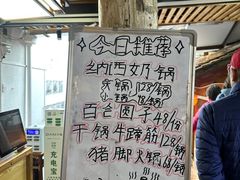 今日推荐
纳西奶锅
大锅 128/锅
小锅 /锅
百合圆子48/份
干锅牛蹄筋128/锅
猪脚火锅 68/锅
充电宝